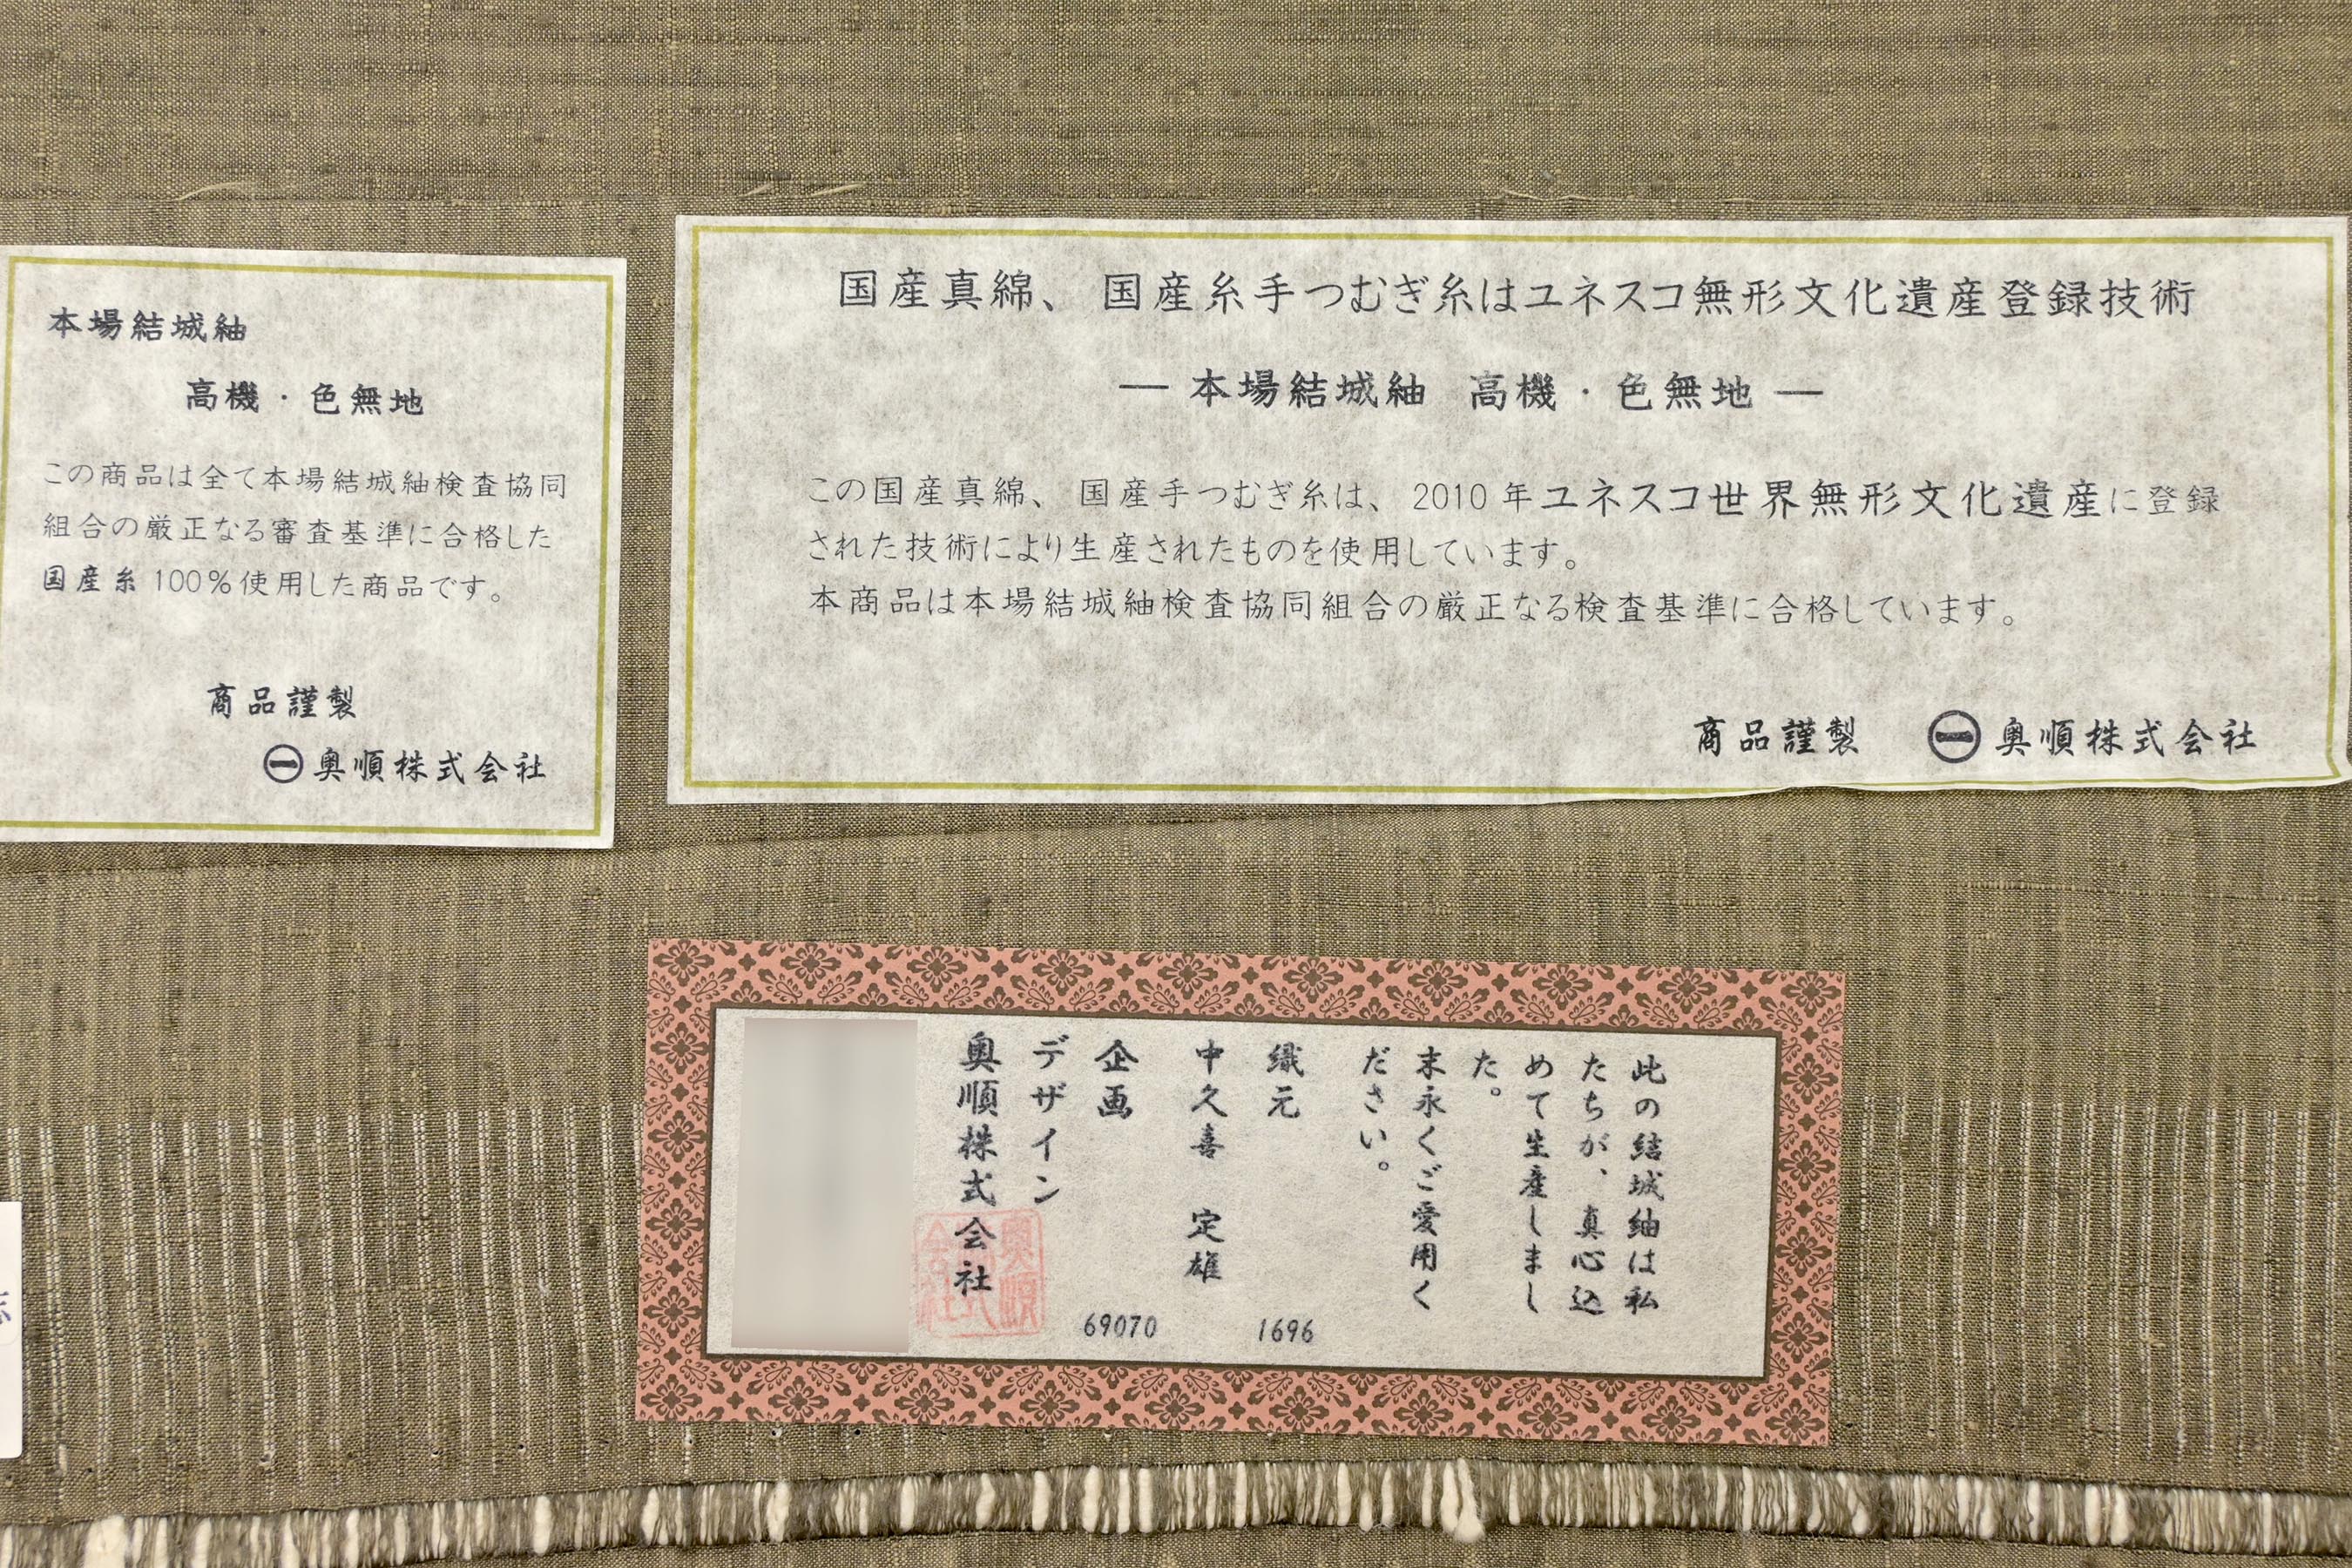 本場結城紬
高機・色無地
この商品は全て本場結城紬検査協同
組合の厳正なる審査基準に合格した
国産糸100%使用した商品です。
商品謹製
㊀奥順株式会社
国産真綿、国産糸手つむぎ糸はユネスコ無形文化遺産登録技術
― 本場結城紬 高機・色無地 ―
この国産真綿、国産手つむぎ糸は、2010年ユネスコ世界無形文化遺産に登録
された技術により生産されたものを使用しています。
本商品は本場結城紬検査協同組合の厳正なる検査基準に合格しています。
商品謹製 ㊀奥順株式会社
此の結城紬は私
たちが、真心込
めて生産しまし
た。
末永くご愛用く
ださい。
織元
1696
中久喜 定雄
企画
69070
デザイン
奥順株式会社